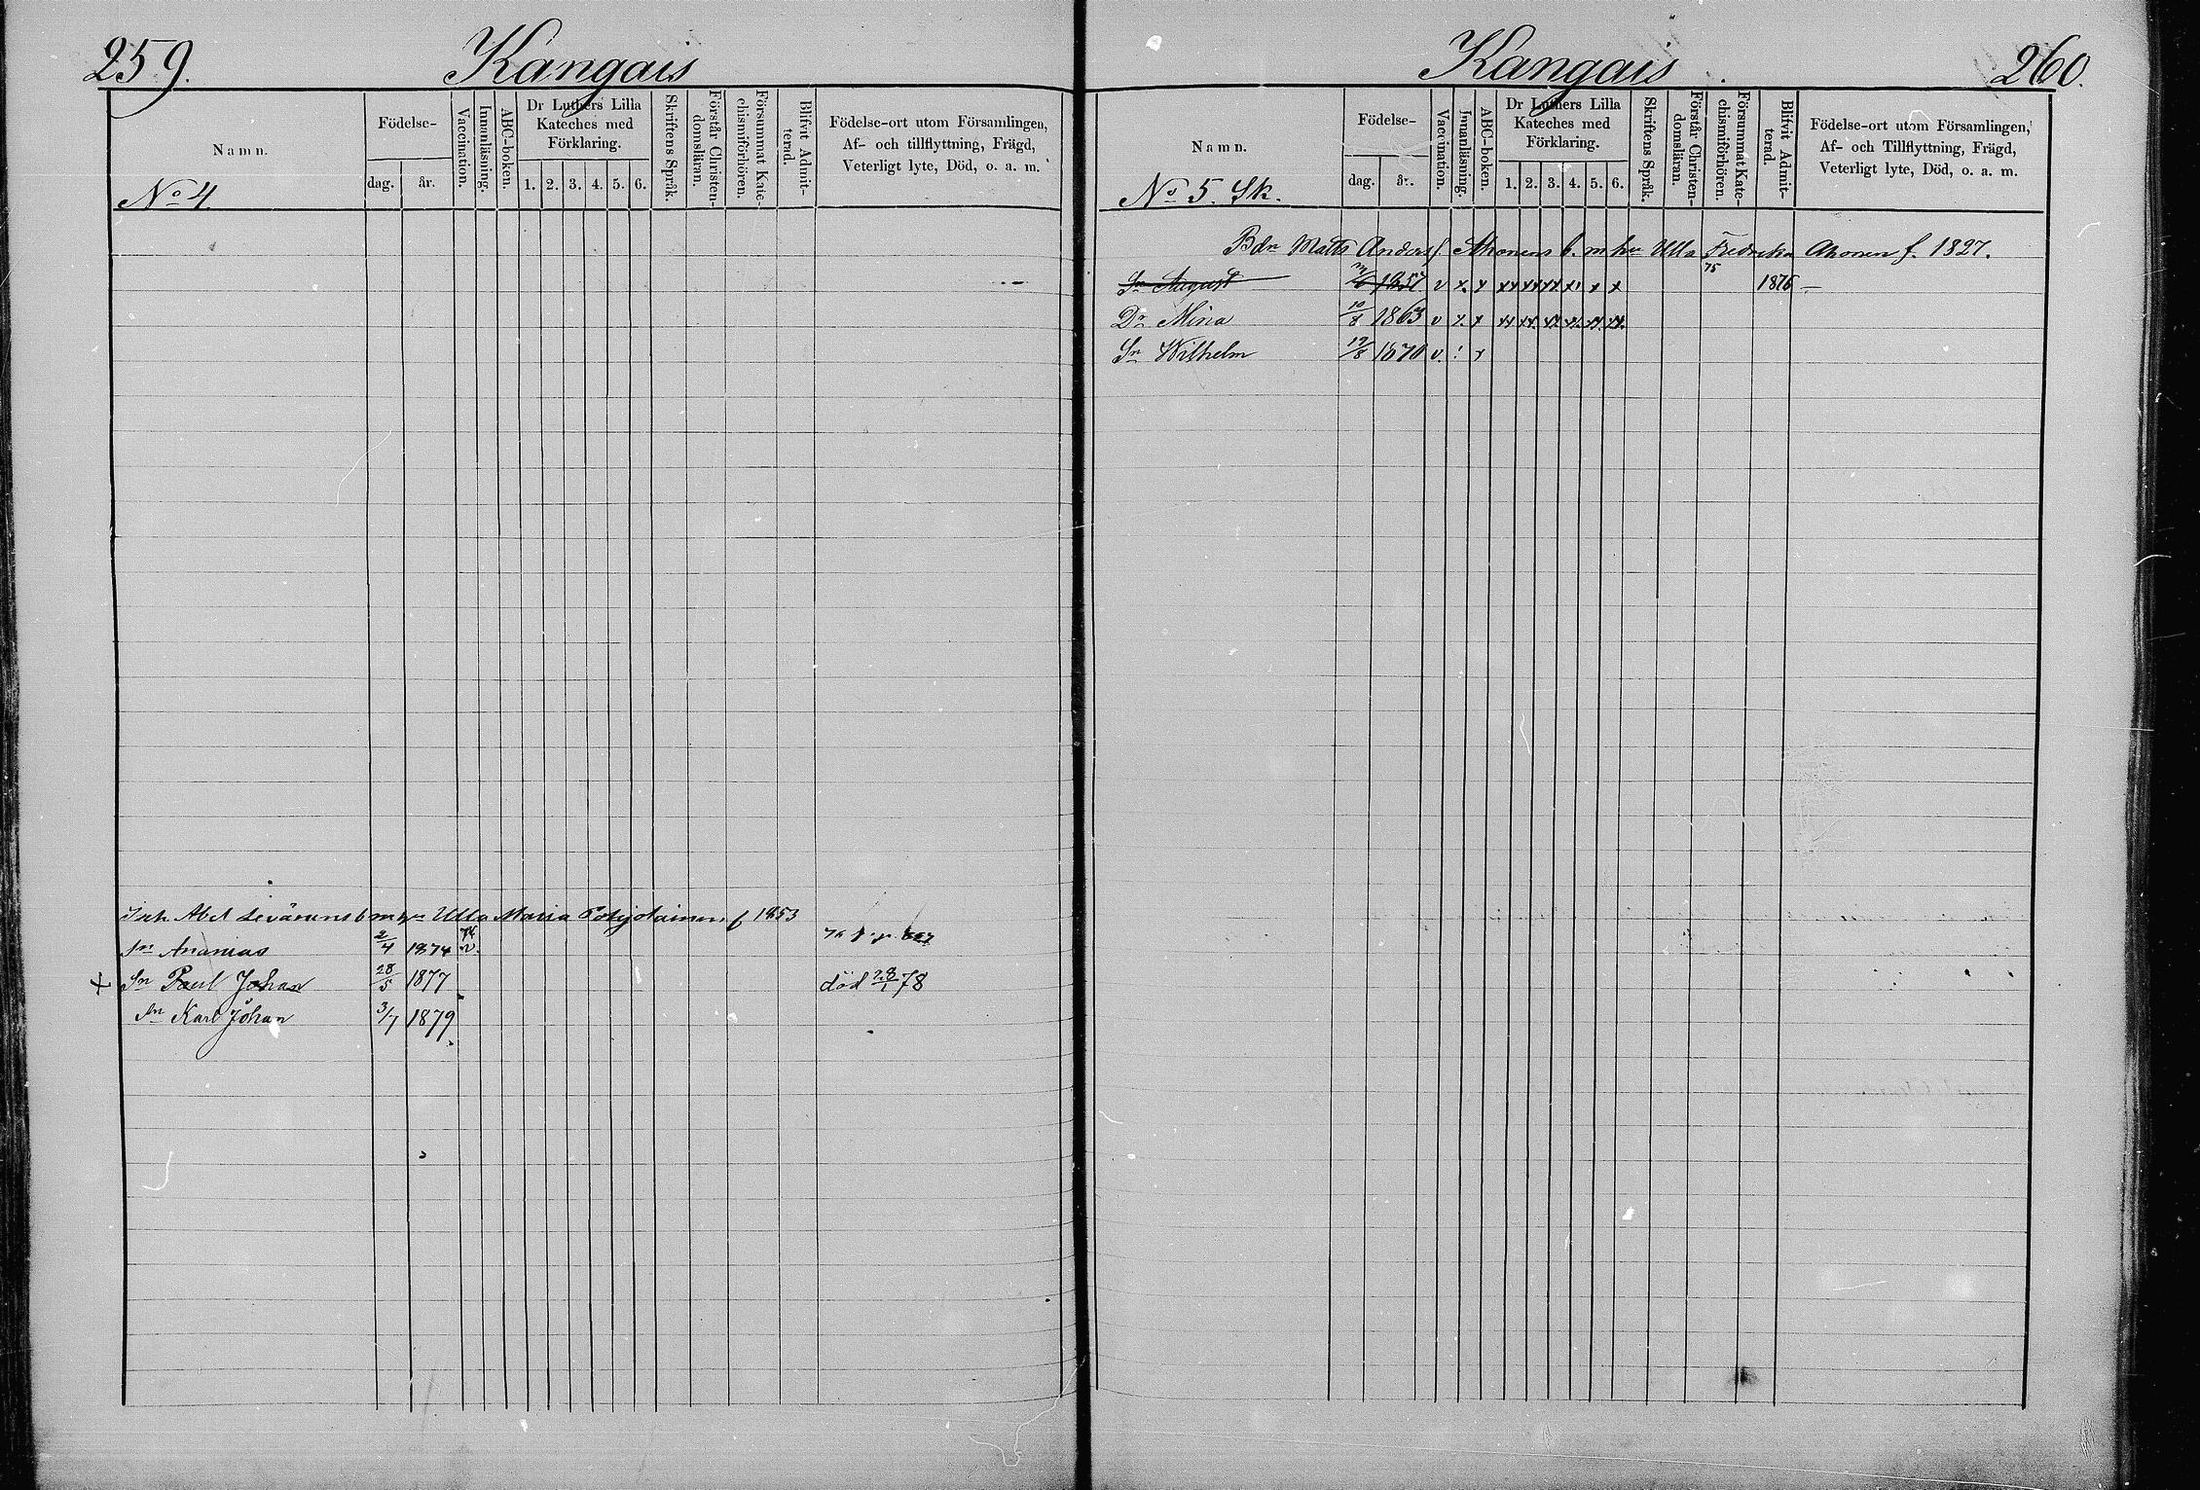 259.
Kangais
Namn.
Födelse-
dag.
år.
Vaccination.
Innanläsning.
ABC-boken.
Dr Luthers Lilla
Kateches med
Förklaring.
1. 2. 3. 4. 5. 6.
Skriftens Språk.
Förstår Christen-
domsläran.
Försummat Kate-
chismiförhören.
Blifvit Admit-
terad.
Födelse-ort utom Församlingen,
Af- och tillflyttning, Frägd,
Veterligt lyte, Död, o. a. m.
No 4
Abel b m hu Ulla Maria Pohjolainen f 1853
Sn Ananias 2/4 1874 v.
+ Sn Paul Johan 28/5 1877 död 28/1 78
Sn Karl Johan 3/7 1879
Kangais
260.
Namn.
Födelse-
dag.
år.
Vaccination.
Innanläsning.
ABC-boken.
Dr Luthers Lilla
Kateches med
Förklaring.
1. 2. 3. 4. 5. 6.
Skriftens Språk.
Förstår Christen-
domsläran.
Försummat Kate-
chismiförhören.
Blifvit Admit-
terad.
Födelse-ort utom Församlingen,
Af- och Tillflyttning, Frägd,
Veterligt lyte, Död, o. a. m.
No 5. Sk.
Bdn Matts Anders f. Ahonens b. m hu Ulla Fredrika Ahonen f. 1827.
Sn August 1857 v x x 75 1876 —
Dr Mina 10/8 1863 v x x
Sn Wilhelm 19/8 1870 v. ! x